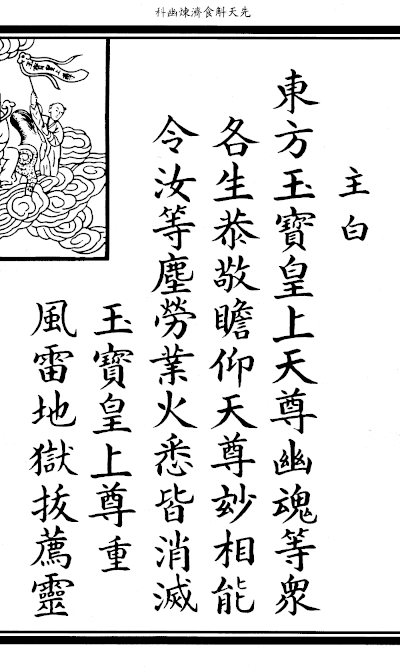 先天斛食濟煉幽科
主白
東方玉寶皇上天尊幽魂等衆
各生恭敬瞻仰天尊玅相能
令汝等塵勞業火悉皆消滅
玉寶皇上尊重
風雷地獄拔薦靈